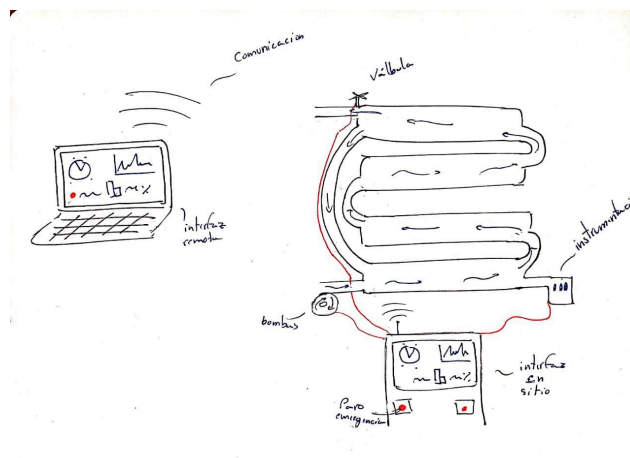 Comunicacion
Válbula
interfaz
remota
instrumentaci
bombas
interfaz
en
sitio
Paro
emergencia